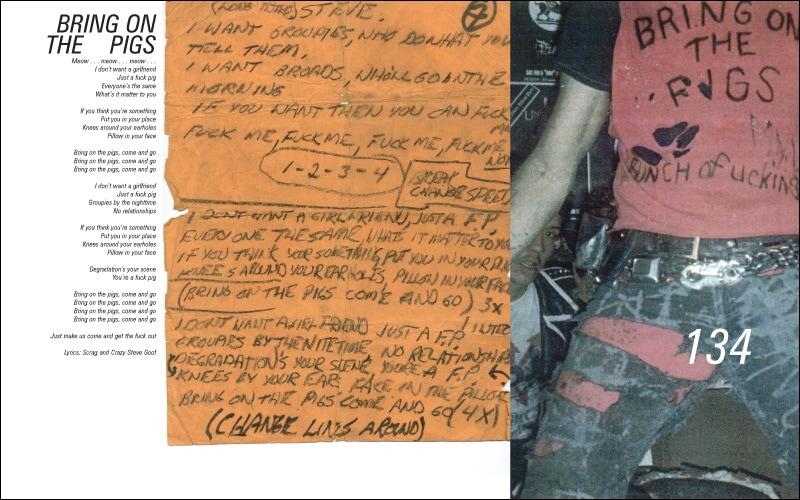 BRING ON
THE PIGS
Meow . . . meow . . . meow . . .
I don't want a girlfriend
Just a fuck pig
Everyone's the same
What's it matter to you
If you think you're something
Put you in your place
Knees around your earholes
Pillow in your face
Bring on the pigs, come and go
Bring on the pigs, come and go
Bring on the pigs, come and go
I don't want a girlfriend
Just a fuck pig
Groupies by the nighttime
No relationships
If you think you're something
Put you in your place
Knees around your earholes
Pillow in your face
Degradation's your scene
You're a fuck pig
Bring on the pigs, come and go
Bring on the pigs, come and go
Bring on the pigs, come and go
Bring on the pigs, come and go
Just make us come and get the fuck out
Lyrics: Scrag and Crazy Steve Goof
(LONG INTRO) STEVE.
2
I WANT GROUPIES, WHO DO WHAT YOU
TELL THEM,
I WANT BROADS, WHO'LL GO IN THE
MORNING
IF YOU WANT THEN YOU CAN FUCK
FUCK ME, FUCK ME, FUCK ME, FUCK ME
1-2-3-4
BREAK
CHANGE SPEED
I DONT WANT A GIRLFRIEND, JUST A F.P.
EVERYONE THE SAME, WHATS IT MATTER TO YOU
IF YOU THINK YOUR SOMETHING, PUT YOU IN YOUR
KNEES AROUND YOUR EARHOLES, PILLOW IN YOUR FACE
(BRING ON THE PIGS COME AND GO) 3X
I DONT WANT A GIRLFRIEND JUST A F.P.
GROUPIES BY THE NITETIME NO RELATIONSHIPS
DEGRADATION'S YOUR SCENE, YOU'RE A F.P
KNEES BY YOUR EARS FACE IN THE PILLOW
BRING ON THE PIGS COME AND GO (4X)
(CHANGE LINES AROUND)
BRING ON
THE
PIGS
BUNCH of ucking
134